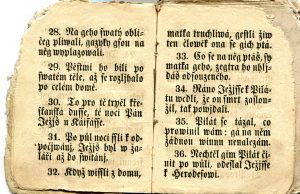 28. Na geho swatý obli-
čeg pliwali, gazyky gsau na
něg wyplazowali.
29. Pěstmi ho bili po
swatém těle, až se rozlíhalo
po celém domě.
30. To pro tě trpěl kře-
sťanská dusse, té noci Pán
Ježjš u Kaifásse.
31. Po půl noci ssli k od-
počjwánj, Ježjš byl w ža-
láři až do switánj.
32. Když wissli z domu,
matka truchliwá, gestli žiw
ten člowěk ona se gich ptá.
33. Co se na něg ptáš,
matka geho, zegtra ho uhljd-
áš odsauzeného.
34. Ráno Ježjsse k Pilá-
tu wedli, že on smrt zaslau-
žil, tak powjdali.
35. Pilát se tázal, co
prowinil wám; gá na něm
žádnau winnu nenalezám.
36. Nechtěl gim Pilát či-
nit po wůli, odeslal Ježjsse
k Herodesowi.